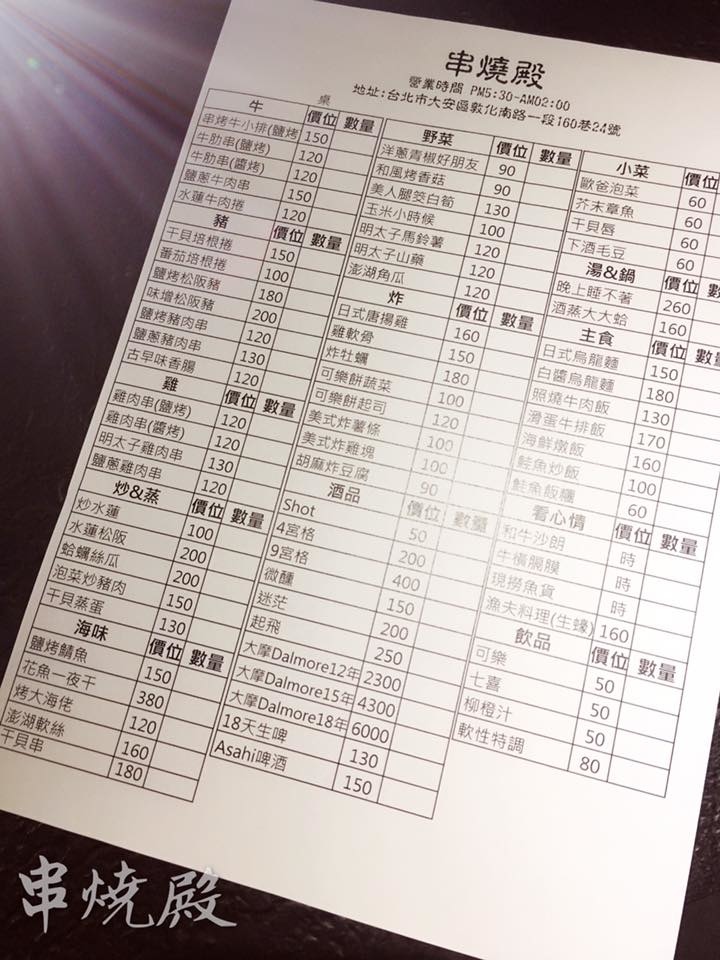 串燒殿
營業時間 PM5:30-AM02:00
地址:台北市大安區敦化南路一段160巷24號
桌
牛 價位 數量
串烤牛小排(鹽烤) 150
牛肋串(鹽烤) 120
牛肋串(醬烤) 120
鹽蔥牛肉串 150
水蓮牛肉捲 120
豬 價位 數量
干貝培根捲 150
番茄培根捲 100
鹽烤松阪豬 180
味增松阪豬 200
鹽烤豬肉串 120
鹽蔥豬肉串 130
古早味香腸 120
雞 價位 數量
雞肉串(鹽烤) 120
雞肉串(醬烤) 120
明太子雞肉串 130
鹽蔥雞肉串 120
炒&蒸 價位 數量
炒水蓮 100
水蓮松阪 200
蛤蠣絲瓜 200
泡菜炒豬肉 150
干貝蒸蛋 130
海味 價位 數量
鹽烤鯖魚 150
花魚一夜干 380
烤大海佬 120
澎湖軟絲 160
干貝串 180
野菜 價位 數量
洋蔥青椒好朋友 90
和風烤香菇 90
美人腿筊白筍 130
玉米小時候 100
明太子馬鈴薯 120
明太子山藥 120
澎湖角瓜 120
炸 價位 數量
日式唐揚雞 160
雞軟骨 150
炸牡蠣 180
可樂餅蔬菜 100
可樂餅起司 120
美式炸薯條 100
美式炸雞塊 100
胡麻炸豆腐 90
酒品 價位 數量
Shot 50
4宮格 200
9宮格 400
微醺 150
迷茫 200
起飛 250
大摩Dalmore12年 2300
大摩Dalmore15年 4300
大摩Dalmore18年 6000
18天生啤 130
Asahi啤酒 150
小菜 價位
歐爸泡菜 60
芥末章魚 60
干貝唇 60
下酒毛豆 60
湯&鍋 價位 數
晚上睡不著 260
酒蒸大大蛤 160
主食 價位 數量
日式烏龍麵 150
白醬烏龍麵 180
照燒牛肉飯 130
滑蛋牛排飯 170
海鮮燉飯 160
鮭魚炒飯 100
鮭魚飯糰 60
看心情 價位 數量
和牛沙朗 時
牛橫膈膜 時
現撈魚貨 時
漁夫料理(生蠔) 160
飲品 價位 數量
可樂 50
七喜 50
柳橙汁 50
軟性特調 80
串燒殿